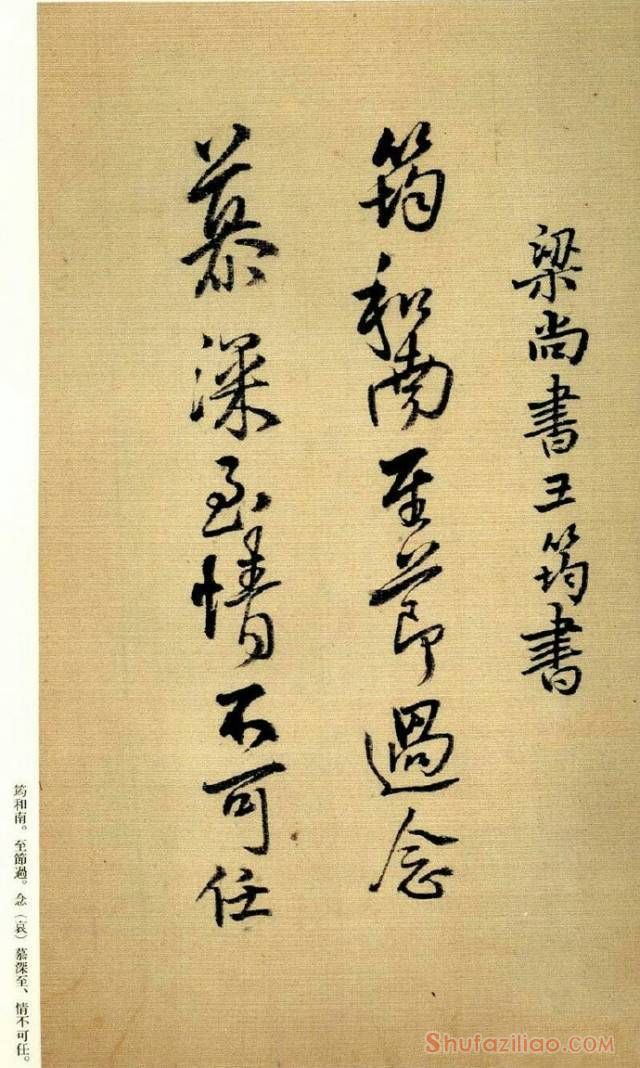 梁尚書王筠書
筠和南至節過念
慕深至情不可任
筠和南。至節過。念（哀）慕深至、情不可任。
Shufaziliao.COM